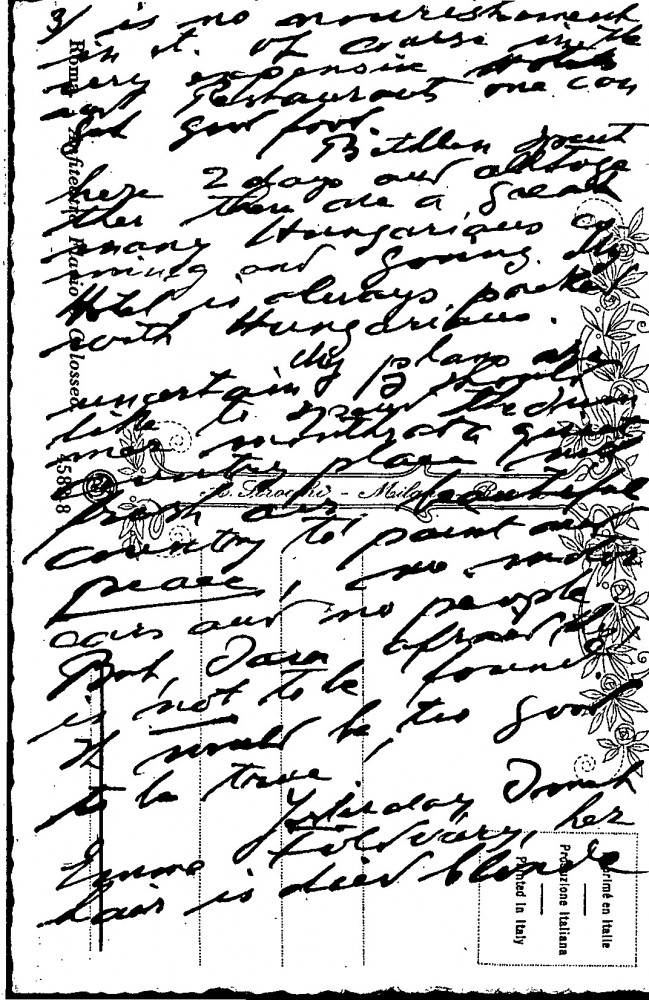 3/ is no nourishment
in it. Of course in the
very expensive Hotels
and Restaurants one can
get good food.
Bethlen spent
here 2 days and altoge
ther there are a great
many Hungarians co
ming and going. The
Hotel is always packed
with Hungarians.
My plans are
uncertain, I should
like to spend the sum
mer months at a quiet
country place
fresh air, beautiful
country to paint and
peace, no motor
cars and no people.
But, afraid this
is not to be found.
It would be too good
to be true!
Yesterday I met
Emma Földváry, her
hair is died blonde
Roma - Anfiteatro Flavio Colosseo
45868
A. Scrocchi - Milano
Imprimé en Italie
Produzione Italiana
Printed in Italy